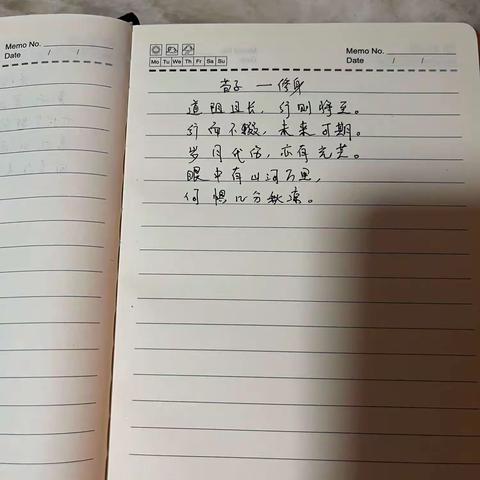 Memo No.
Date / /
Mo Tu We Th Fr Sa Su
Memo No.
Date / /
荀子 一 修身
道阻且长，行则将至。
行而不辍，未来可期。
岁月代伤，亦有光芒。
眼中有山河万里，
何惧几分秋凉。